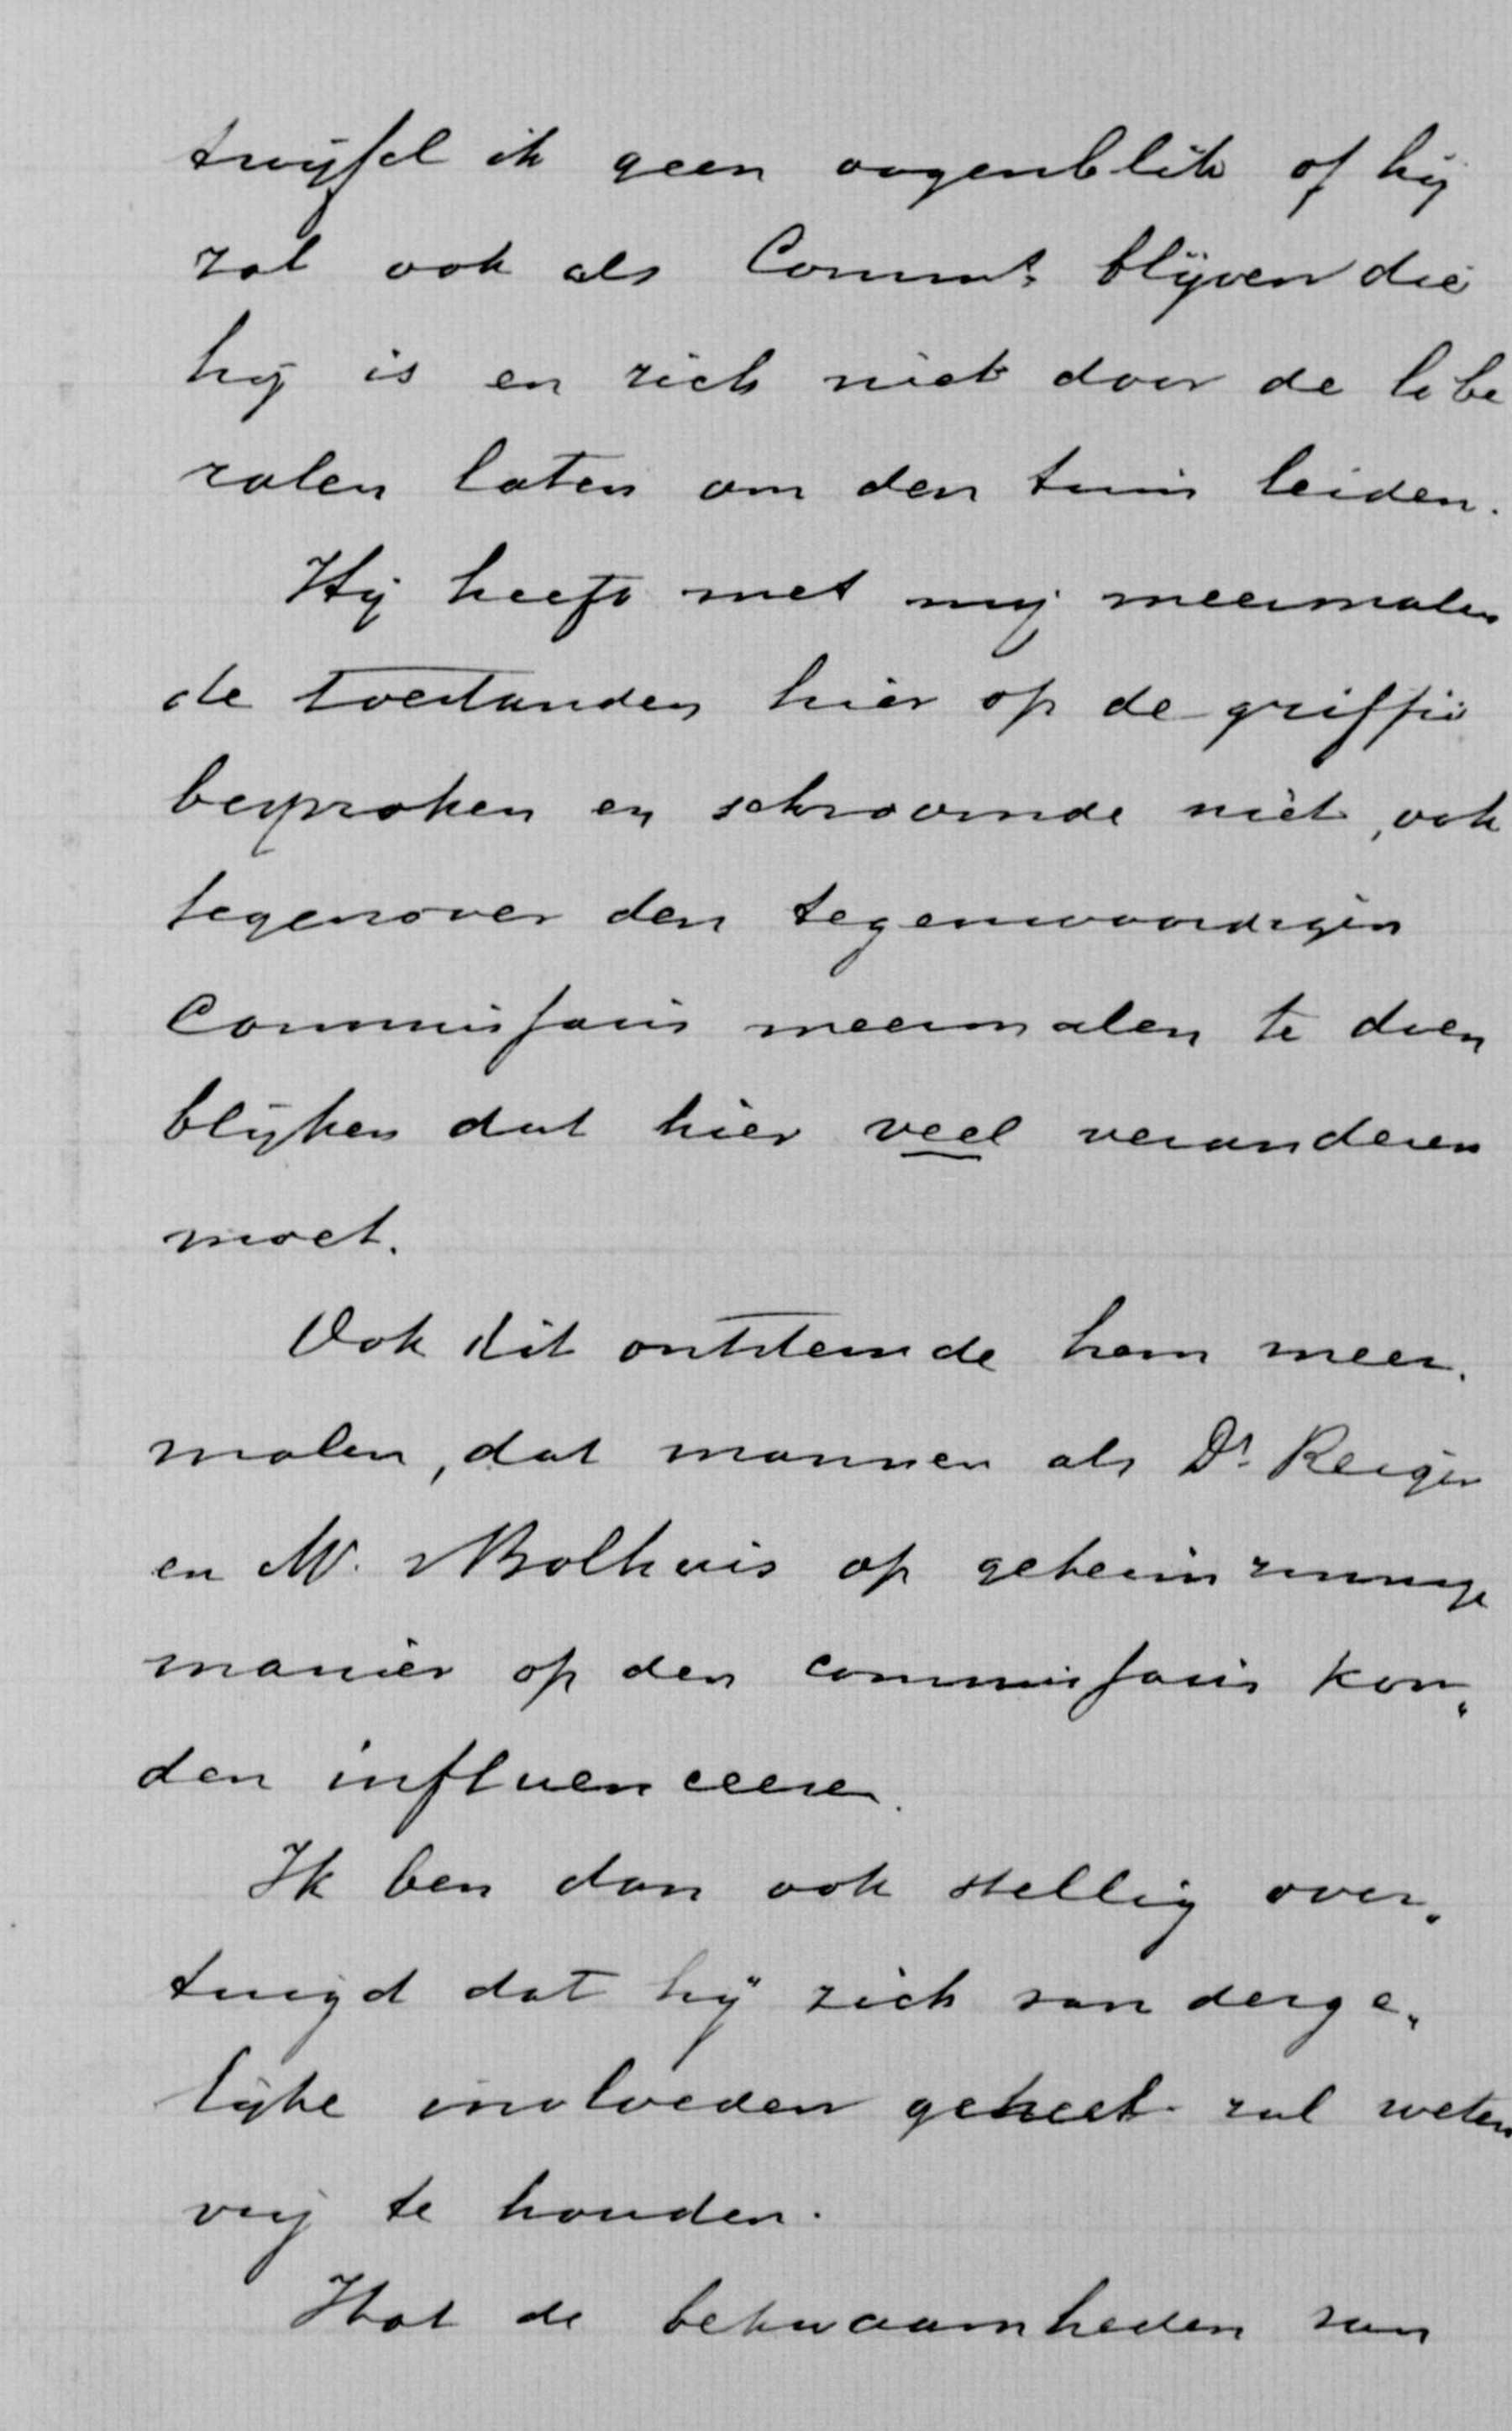 twijfel ik geen oogenblik of hij
zal ook als Commis blijven die
hij is en zich niet door de libe
ralen laten om den tuin leiden.
Hij heeft met mij meermalen
de toestanden hier op de griffie
besproken en schroomde niet, ook
tegenover den tegenwoordigen
Commissaris meermalen te doen
blijken dat hier veel veranderen
moet.
Ook dit ontstemde hem meer„
malen, dat mannen als Dr. Reiger
en Mr. Bolhuis op geheimzinnige
manier op den commissaris kon„
den influenceeren.
Ik ben dan ook stellig over„
tuigd dat hij zich van derge„
lijke invloeden geheel zal weten
vrij te houden.
Wat de bekwaamheden van